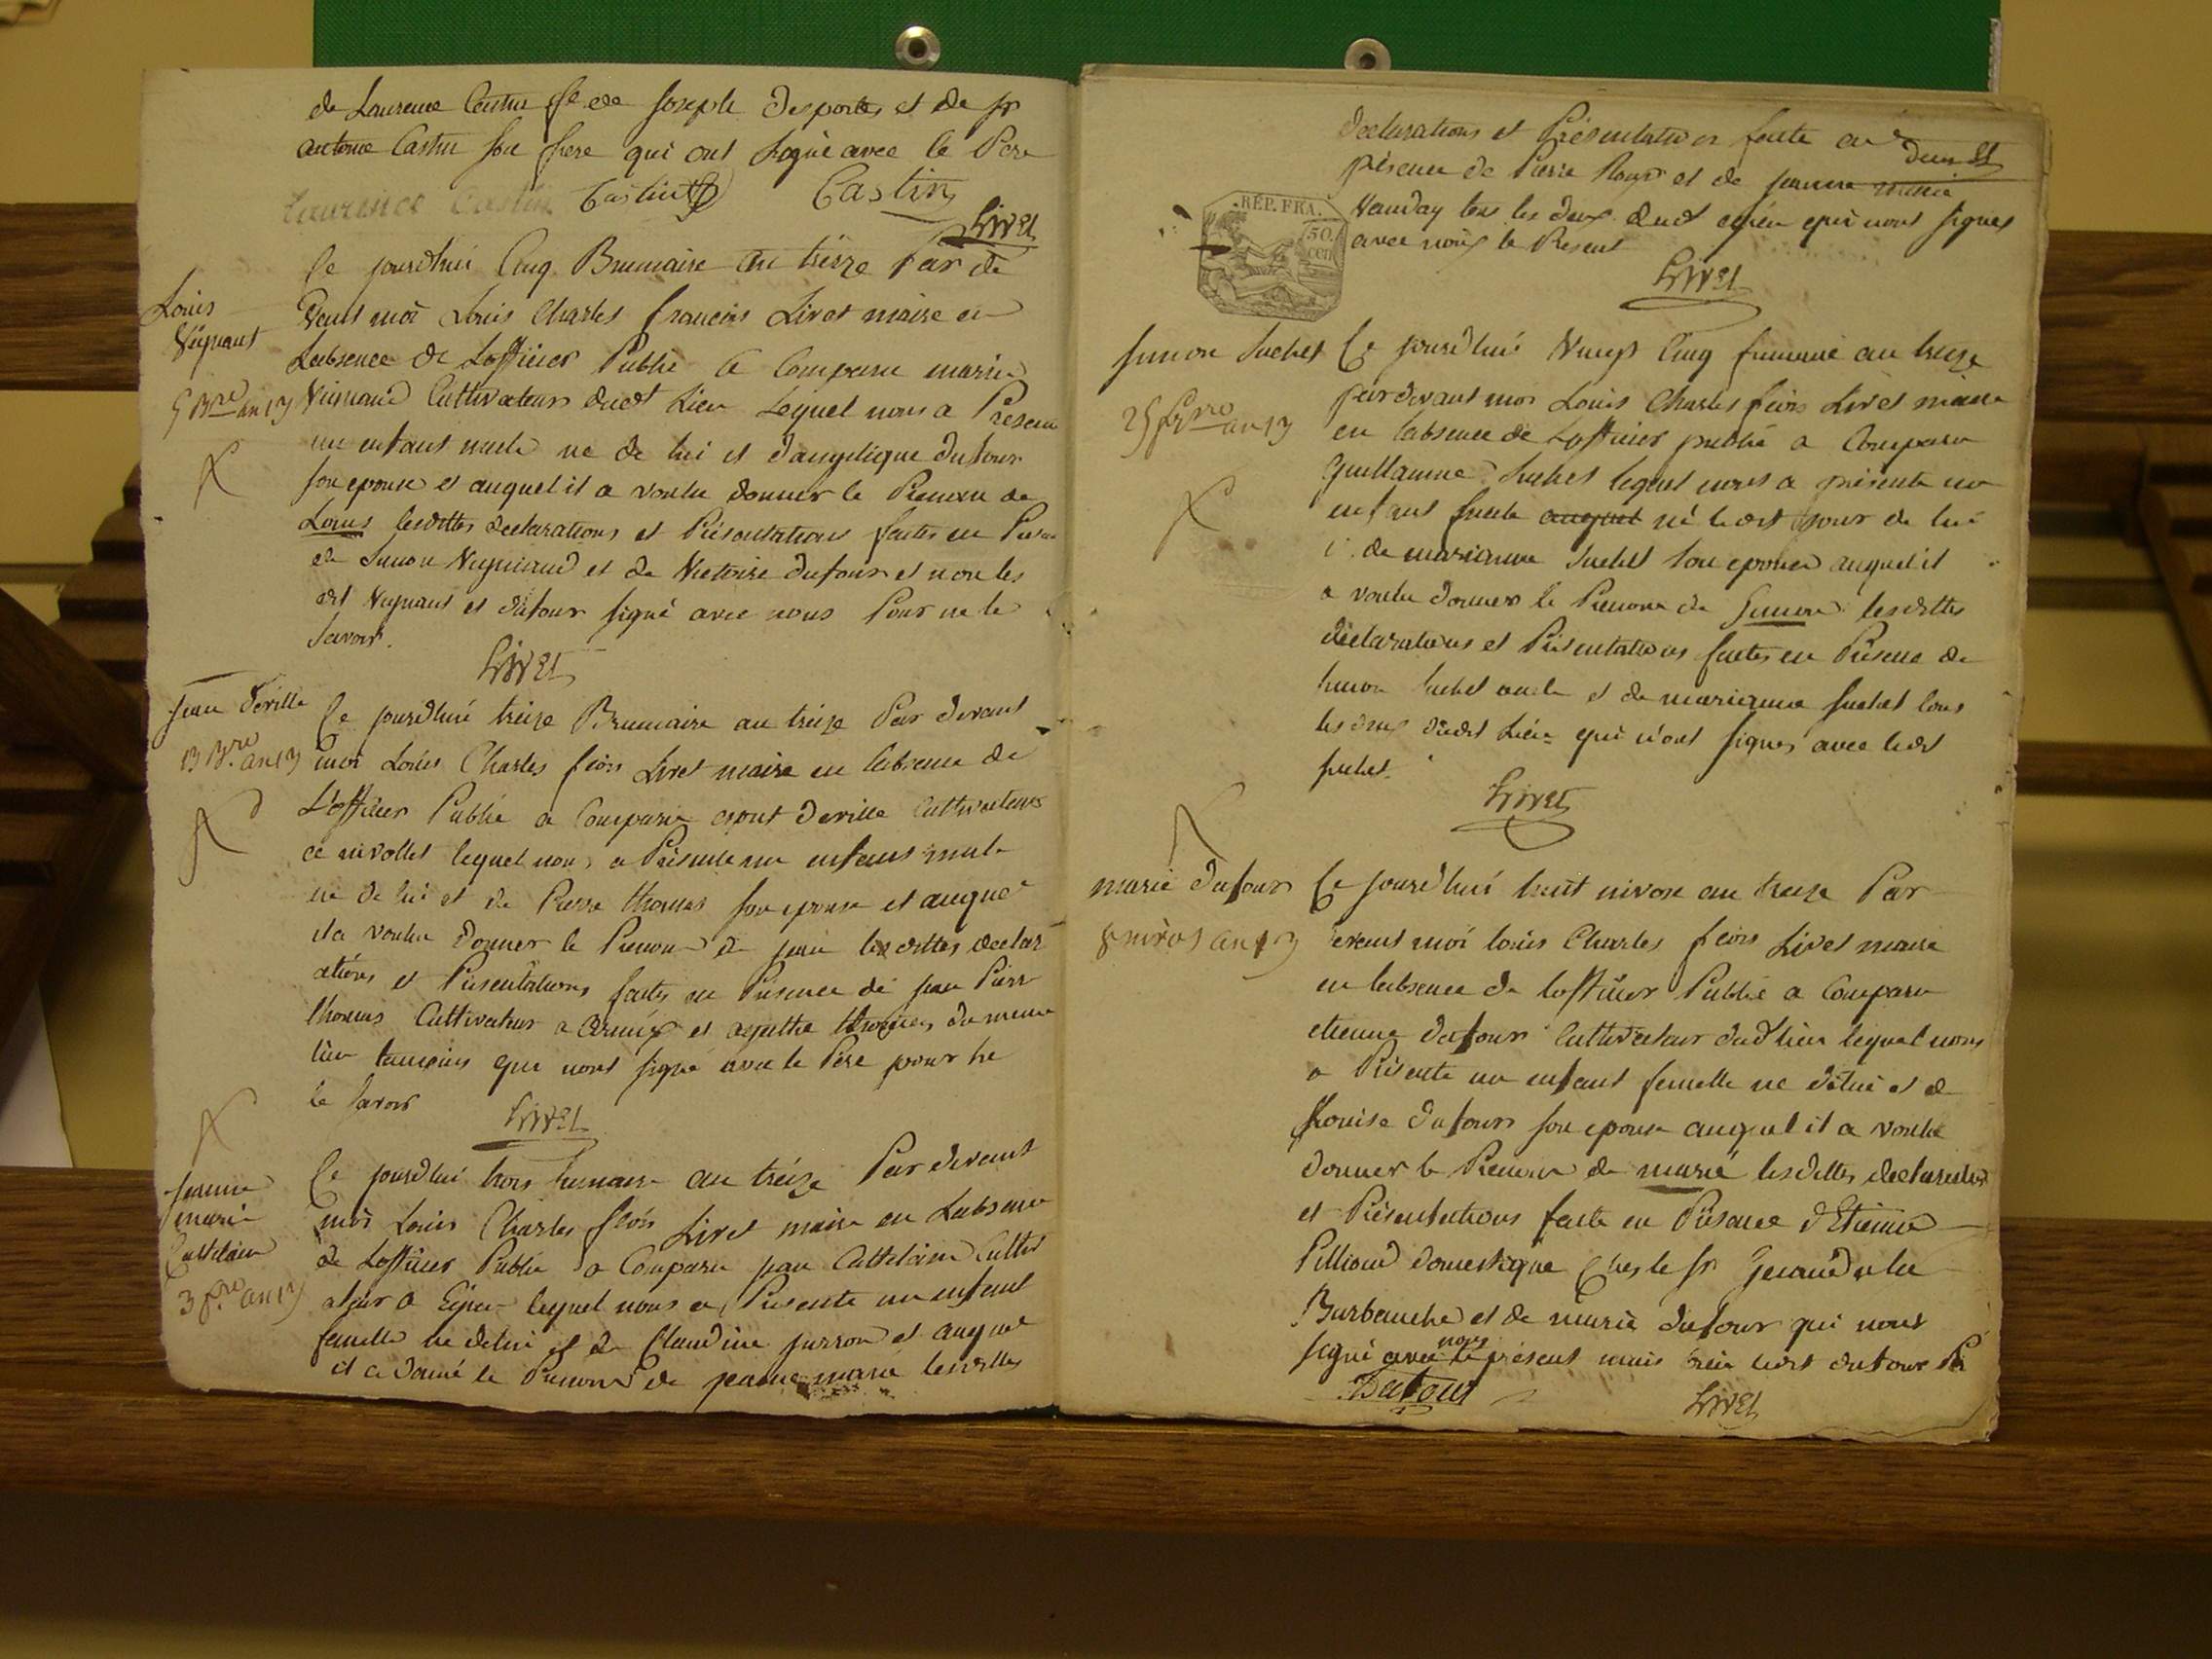 de Laurence Castin fe de Joseph Desportes et de jr
antoine Castin son frere qui ont signé avec le Pere
Laurence Castin Castin Castin
Livet
Ce jourdhui Cinq Brumaire an treize Par de
Louis
Vignaut
5 Bre an 13
Vant moi Louis Charles francois Livet maire en
Labsence de Lofficier Public a Comparu
Vignaud Cultivateur dudt Lieu Lequel nous a Presenté
un enfant male ne de lui et dangelique dufour
son epouse et auquel il a voulu donner le Prenom de
Louis lesdittes declarations et Présentations faites en Presence
de Simon Vigniaud et de Victoire dufour et non les
dit Vignaut et dufour signé avec nous Pour ne le
Savoir.
Livet
jean Deville
13 Bre an 13
Ce jourdhui treize Brumaire an treize Par devant
moi Louis Charles frois Livet maire en labsence de
L'officier Public a Comparu Deville Cultivateur
a nivollet lequel nous a Présenté un enfant male
ne de lui et de Pierre thomas son epouse et auquel
il a voulu donner le Prenom de jean lesdittes declar
ations et Présentations faites en Présence de jean Pierre
thomas Cultivateur a et agathe thomas du meme
lieu temoins qui nont signé avec le Pere pour ne
le savoir
Livet
jeanne
marie
Castelain
3 fre an 13
Ce jourdhui trois frimaire an treize Par devant
moi Louis Charles frois Livet maire en Labsence
de Lofficier Public a Comparu jean Cattelain Cultiv
ateur a lequel nous a Présenté un enfant
femelle ne de lui et de Claudine et auquel
il a donné le Prenom de jeanne marie lesdittes
declarations et Présentation faitte en
présence de Pierre et de jeanne marie
Vauday tous les deux dudt qui nont signés
avec nous le Present
Livet
RÉP. FRA.
50
cen
Simon Suchet
25 fre an 13
Ce jourdhui Vingt Cinq frimaire an treize
pardevant moi Louis Charles frois Livet maire
en labsence de Lofficier public a Comparu
Guillaume Suchet lequel nous a présenté un
enfant auquel né ledit jour de lui
de marianne Suchet son epouse auquel il
a voulu donner le Prenom de Simon lesdittes
déclarations et Présentations faites en Présence de
Simon Suchet et de marianne Suchet tous
les deux dudit Lieu qui n'ont signés avec ledt
suchet.
Livet
marie dufour
8 nivos an 13
Ce jourdhui huit nivose an treize Par
devant moi louis Charles frois Livet maire
en labsence de lofficier Public a Comparu
etienne dufour Cultivateur dudt lieu lequel nous
a Présenté un enfant femelle ne de lui et de
Louise dufour son epouse auquel il a voulu
donner le Prenom de marie lesdittes declarations
et Présentations faite en Présence d'Etienne
Pilliond domestique Ches le sr
Barbanche et de marie dufour qui nont
signé avec nous le présent mais bien ledt dufour
Dufour
Livet